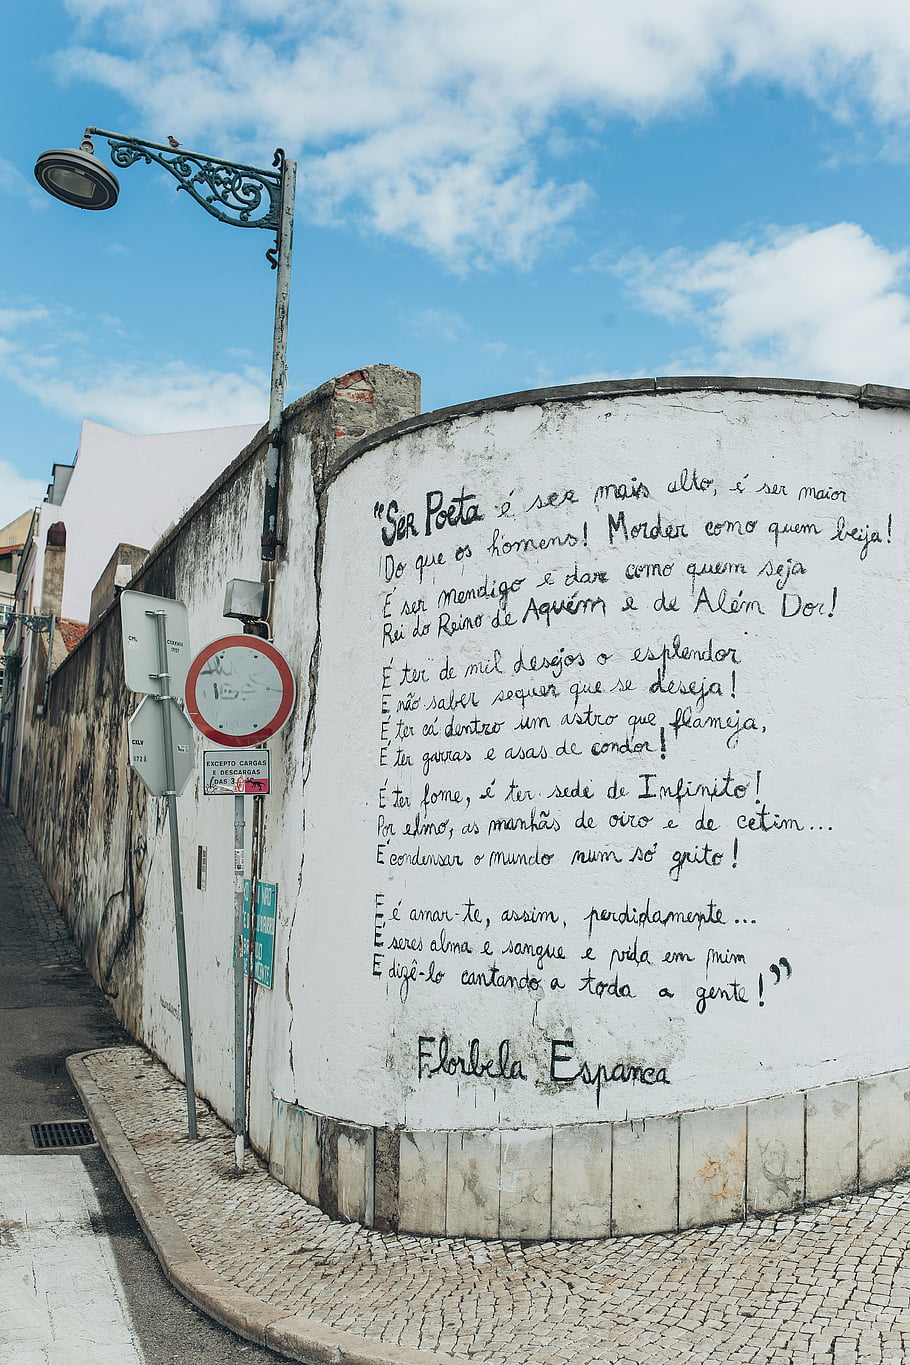 “Ser Poeta é ser mais alto, é ser maior
Do que os homens! Morder como quem beija!
É ser mendigo e dar como quem seja
Rei do Reino de Aquém e de Além Dor!
É ter de mil desejos o esplendor
E não saber sequer que se deseja!
É ter cá dentro um astro que flameja,
É ter garras e asas de condor!
É ter fome, é ter sede de Infinito!
Por elmo, as manhãs de oiro e de cetim...
É condensar o mundo num só grito!
E é amar-te, assim, perdidamente...
E seres alma e sangue e vida em mim
E dizê-lo cantando a toda a gente!”
Florbela Espanca
CML
CXLV
EXCEPTO CARGAS
E DESCARGAS
DAS